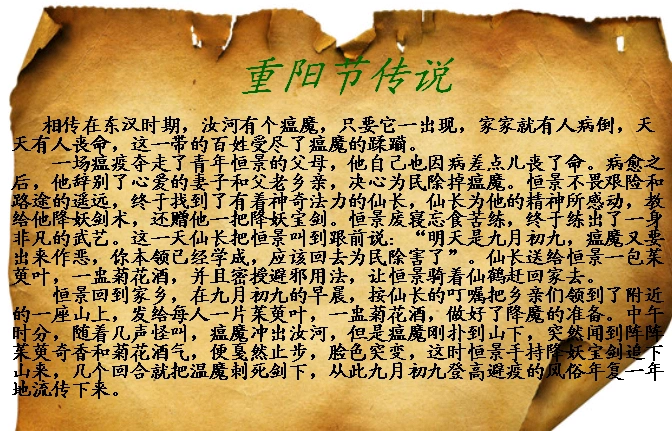 重阳节传说
相传在东汉时期，汝河有个瘟魔，只要它一出现，家家就有人病倒，天
天有人丧命，这一带的百姓受尽了瘟魔的蹂躏。
一场瘟疫夺走了青年恒景的父母，他自己也因病差点儿丧了命。病愈之
后，他辞别了心爱的妻子和父老乡亲，决心为民除掉瘟魔。恒景不畏艰险和
路途的遥远，终于找到了有着神奇法力的仙长，仙长为他的精神所感动，教
给他降妖剑术，还赠他一把降妖宝剑。恒景废寝忘食苦练，终于练出了一身
非凡的武艺。这一天仙长把恒景叫到跟前说：“明天是九月初九，瘟魔又要
出来作恶，你本领已经学成，应该回去为民除害了”。仙长送给恒景一包茱
萸叶，一盅菊花酒，并且密授避邪用法，让恒景骑着仙鹤赶回家去。
恒景回到家乡，在九月初九的早晨，按仙长的叮嘱把乡亲们领到了附近
的一座山上，发给每人一片茱萸叶，一盅菊花酒，做好了降魔的准备。中午
时分，随着几声怪叫，瘟魔冲出汝河，但是瘟魔刚扑到山下，突然闻到阵阵
茱萸奇香和菊花酒气，便戛然止步，脸色突变，这时恒景手持降妖宝剑追下
山来，几个回合就把温魔刺死剑下，从此九月初九登高避疫的风俗年复一年
地流传下来。